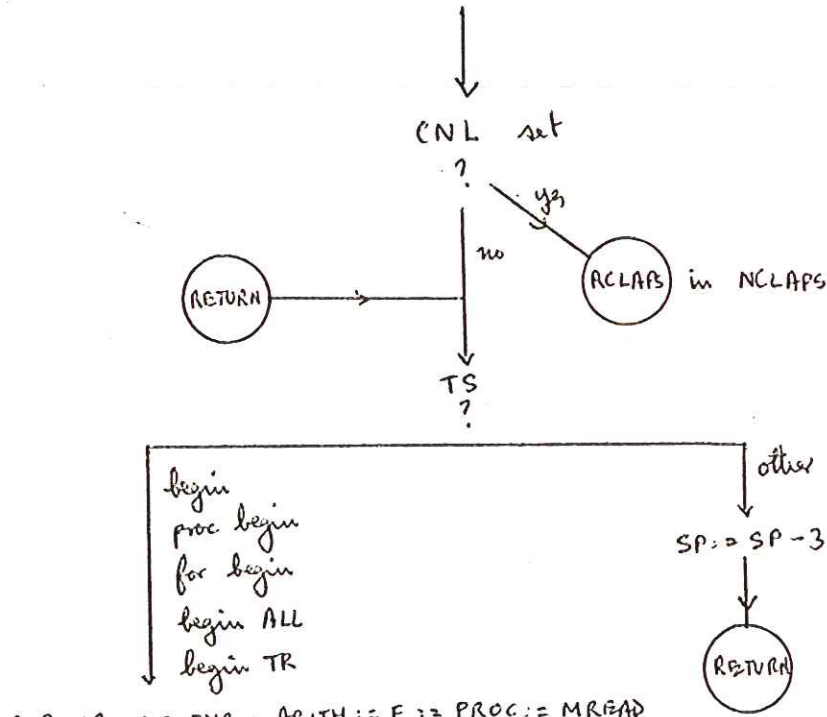 CNL set
?
yes
no
RETURN
RCLAPS in NCLAPS
TS
?
begin
proc begin
for begin
begin ALL
begin TR
other
SP := SP - 3
RETURN
ARITH := E := PROC := MREAD